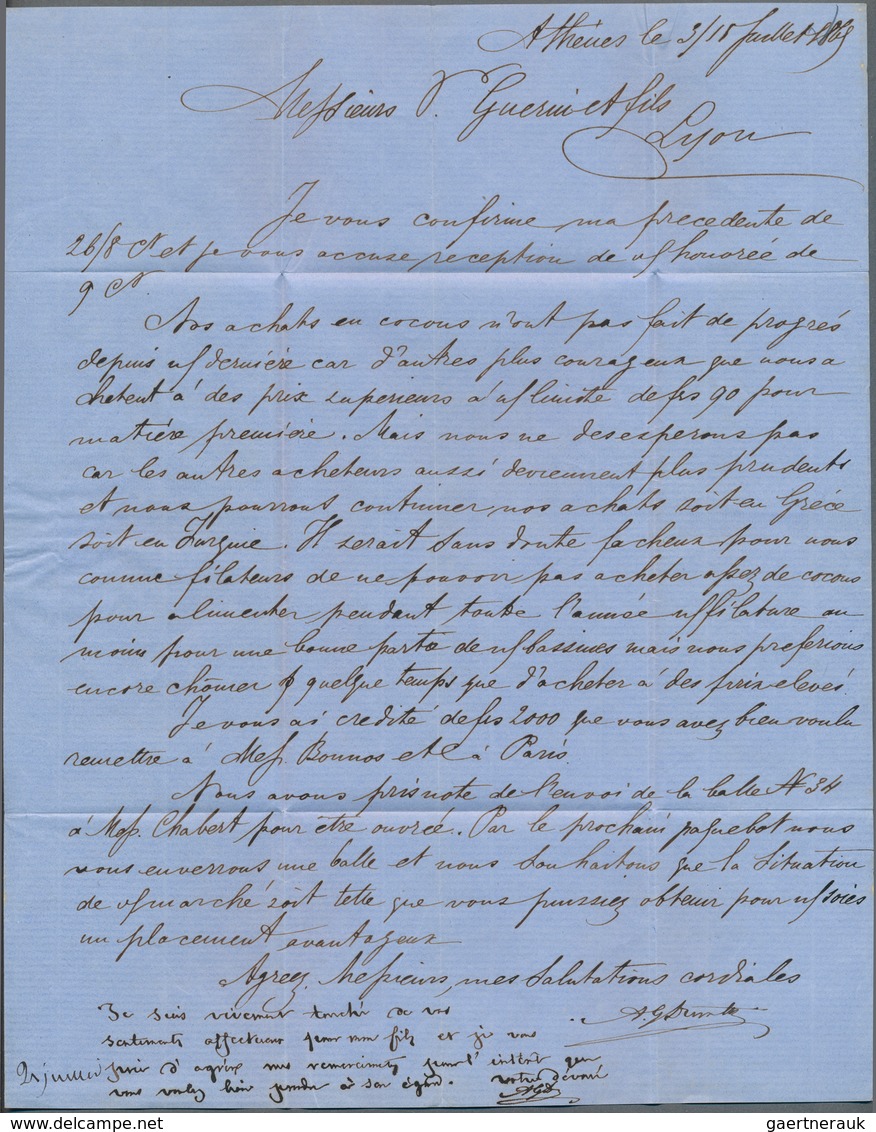 Athénes le 3/15 Juillet 1869
Messieurs V. Guerin et fils
Lyon
Je vous confirme ma precedente de
26/8 Ct et je vous accuse reception de v/honorée de
9 Ct
Nos achats en cocons n'ont pas fait de progrés
depuis n/derniére car d'autres plus courageux que nous a
chetent á des prix superieurs á n/limite de frs 90 pour
matiére premiére. Mais nous ne desesperons pas
car les autres acheteurs aussi deviennent plus prudents
et nous pourrons continuer nos achats soit en Gréce
soit en Turquie. Il serait sans doute facheux pour nous
comme filateurs de ne pouvoir pas acheter assez de cocons
pour alimenter pendant toute l'année n/filature au
moins pour une bonne partie de n/bassines mais nous preferions
encore chômer quelque temps que d'acheter á des prix elevés.
Je vous ai credité de frs 2000 que vous avez bien voulu
remettre á Mess. Bonnos et C á Paris.
Nous avons pris note de l'envoi de la balle N 34
á Mess. Chabert pour être ouvrée. Par le prochain paquebot nous
vous enverrons une balle et nous souhaitons que la situation
de v/marché soit telle que vous puissiez obtenir pour n/soies
un placement avantageux
Agreez, Messieurs, mes salutations cordiales
Je suis vivement touché de vos
sentiments affectueux pour mon fils et je vous
prie d'agréer mes remerciments pour l'intérêt que
vous voulez bien prendre à son égard. votre dévoué
21 juillet
gaertnerauk @ www.delcampe.net